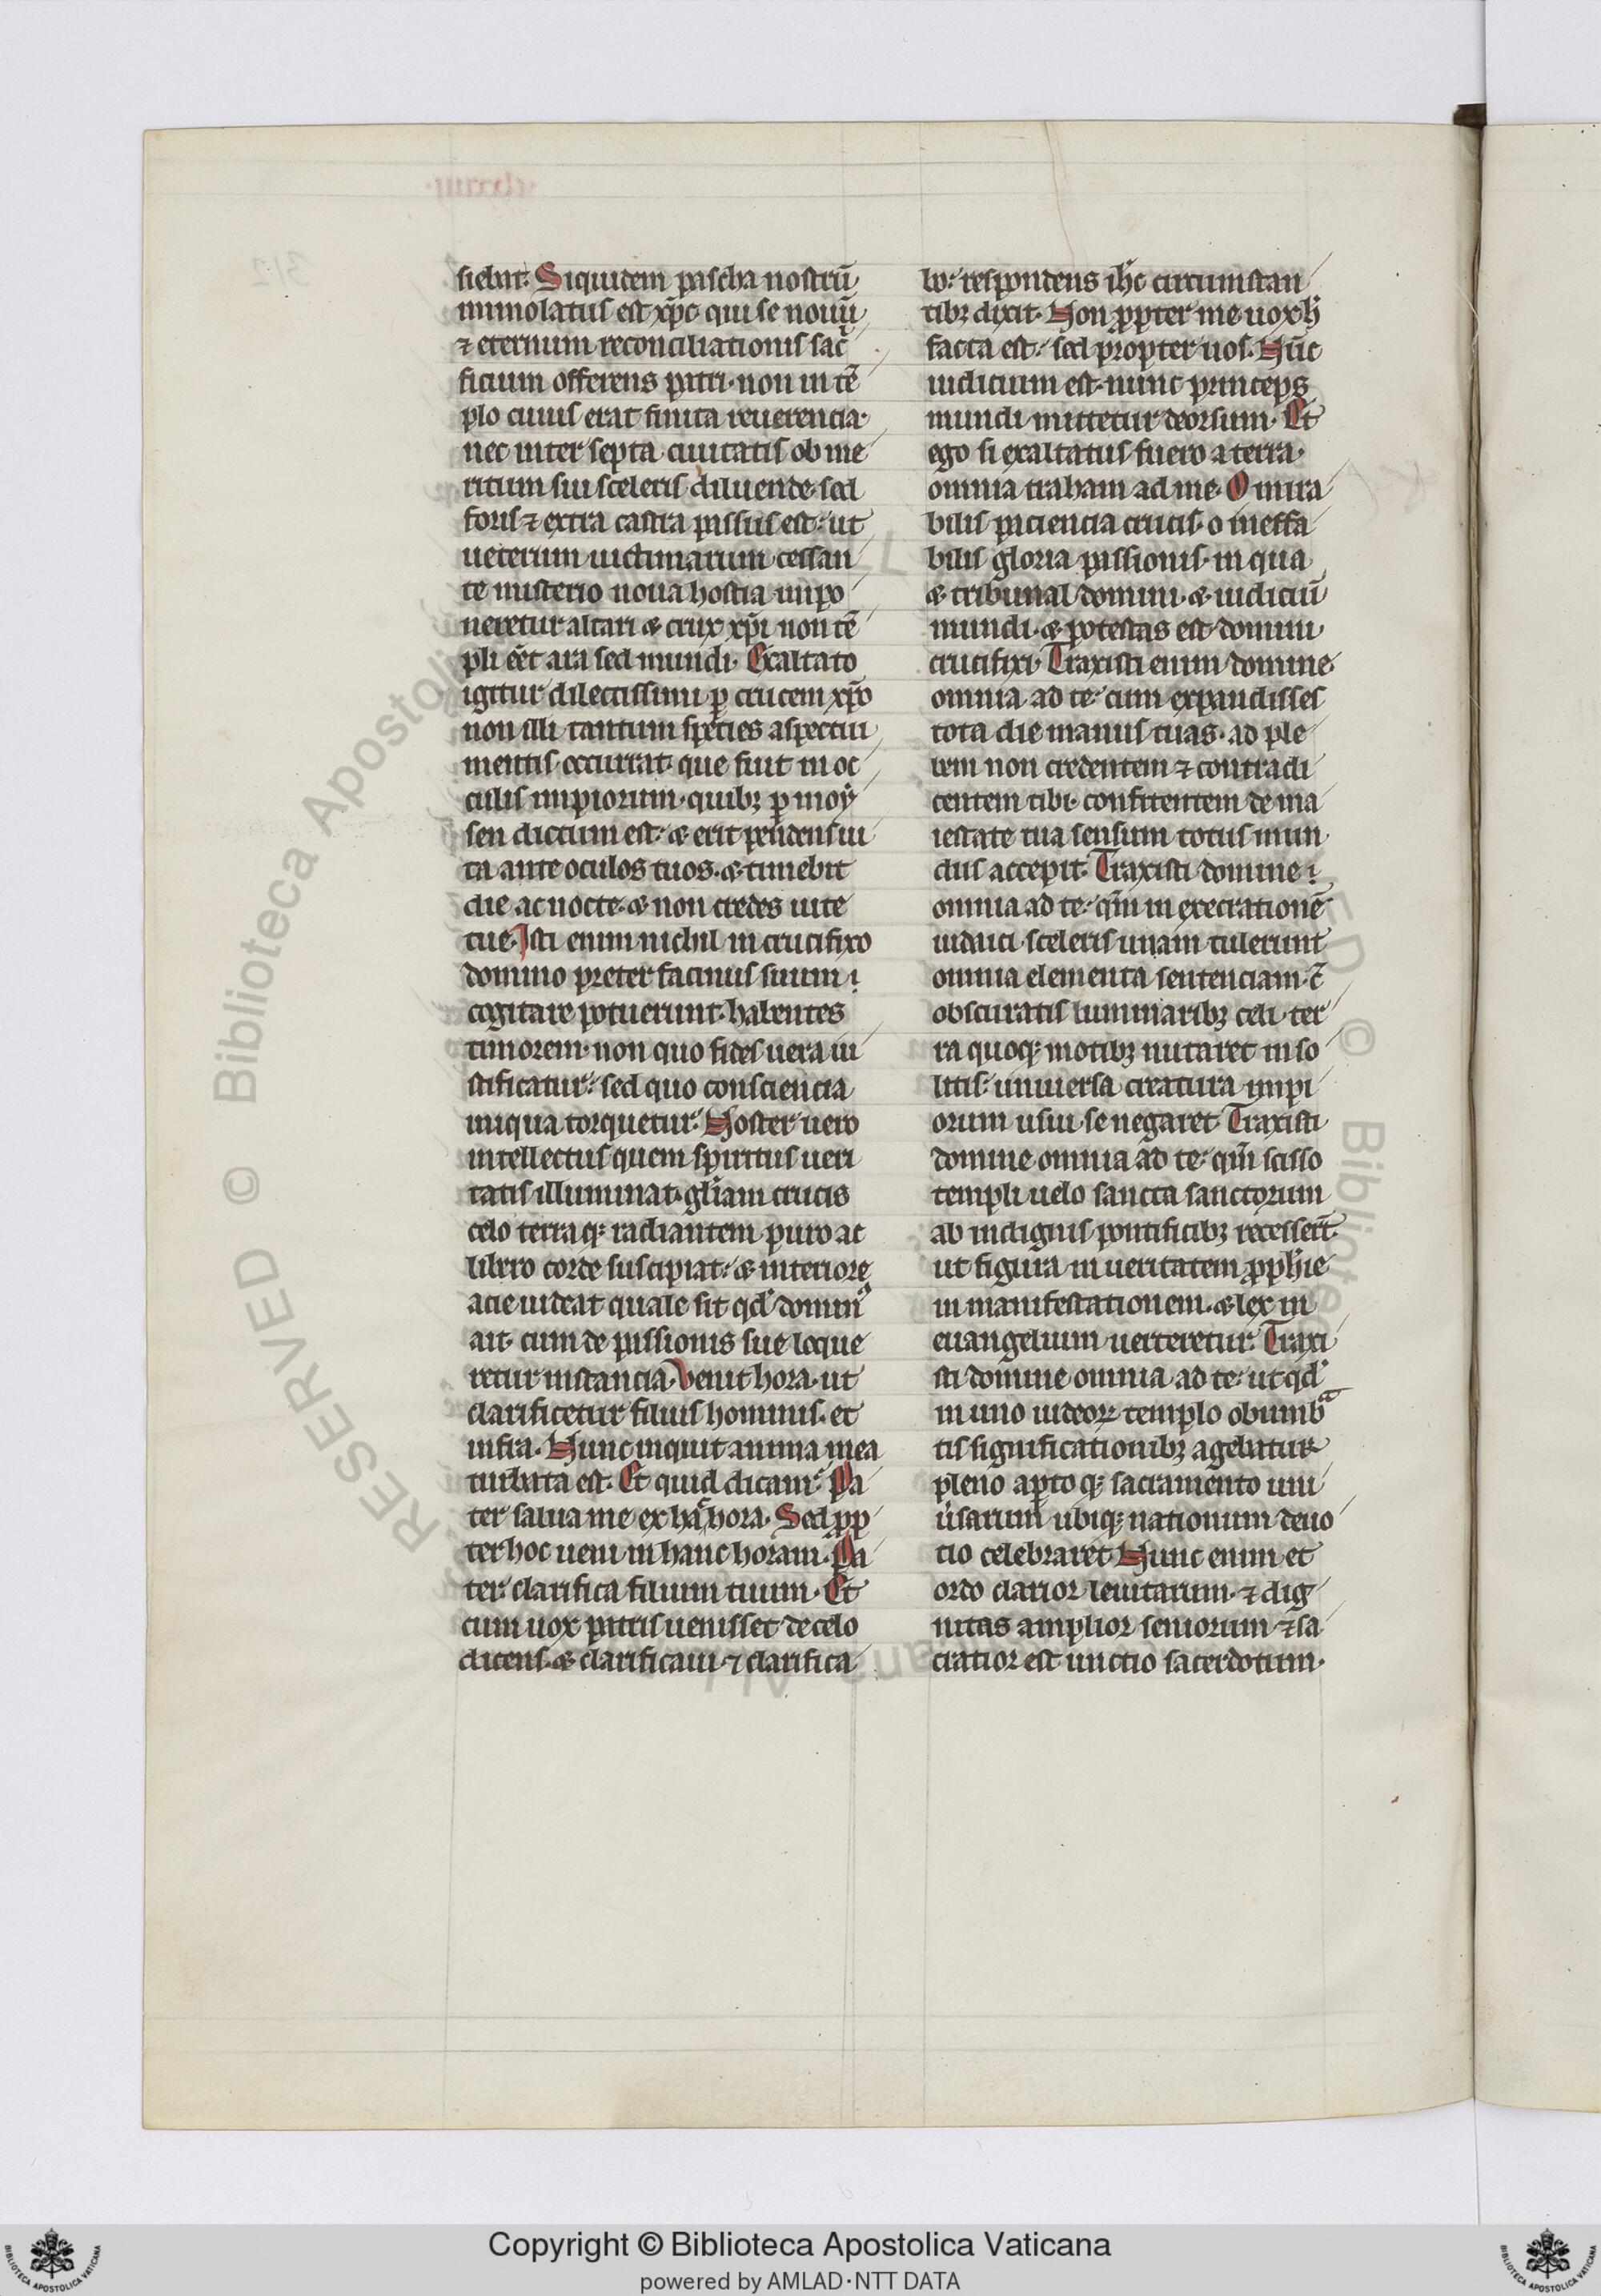 siebat. Siquidem pascha nostrū
immolatus est xp̄c qui se nouū
⁊ eternum reconciliationis sac̄
ficium offerens patri· non in tē
plo cuius erat finita reuerencia·
nec inter septa ciuitatis ob me
ritum sui sceleris diluende· sed
foris ⁊ extra castra passus est· ut
ueterum uictimarum cessan
te misterio noua hostia impo
neretur altari & crux xp̄i non tē
pli eēt ara sed mundi· Exaltato
igitur dilectissimi ꝑ crucem xp̄o
non illi tantum species aspectui
mentis occurrat· que fuit in oc
culis impiorum· quibꝫ ꝑ moy
sen dictum est· & erit pendens ui
ta ante oculos tuos· & timebit
die ac nocte· & non credes uite
tue· Isti enim nichil in crucifixo
domino preter facinus suum
cogitare potuerunt· habentes
timorem· non quo fides uera iu
stificatur· sed quo consciencia
iniqua torquetur· Noster uero
intellectus quem spiritus ueri
tatis illuminat· gl̄iam crucis
celo terraqꝫ radiantem· puro ac
libero corde suscipiat· & interiore
acie uideat quale sit qd̄ dominꝰ
ait· cum de passionis sue loque
retur instancia· Venit hora· ut
clarificetur filius hominis· et
infra· Nunc inquit anima mea
turbata est· Et quid dicam· Pa
ter salua me ex hac hora· Sed ꝓp
ter hoc ueni in hanc horam· Pa
ter clarifica filium tuum· Et
cum uox patris uenisset de celo
dicens· & clarificaui ⁊ clarifica
bo· respondens ih̄c circumstan
tibꝫ dixit· Non ꝓpter me uox h̄
facta est· sed propter uos· Nūc
iudicium est· nunc princeps
mundi mittetur deorsum· Et
ego si exaltatus fuero a terra·
omnia traham ad me· O mira
bilis paciencia crucis· o ineffa
bilis gloria passionis· in qua
& tribunal domini· & iudiciū
mundi· & potestas est domini
crucifixi· Traxisti enim domine
omnia ad te· cum expandisses
tota die manus tuas· ad ple
bem non credentem ⁊ contradi
centem tibi· confitentem de ma
iestate tua sensum totus mun
dus accepit· Traxisti domine
omnia ad te· qm̄ in execrationē
iudaici sceleris unam tulerunt
omnia elementa sentenciam· c̄
obscuratis luminaribꝫ celi· ter
ra quoqꝫ motibꝫ nutaret inso
litis· uniuersa creatura impi
orum usui se negaret· Traxisti
domine omnia ad te· qm̄ scisso
templi uelo sancta sanctorum
ab indignis pontificibꝫ recessert̄·
ut figura in ueritatem ꝓph̄ie
in manifestationem· & lex in
euangelium uerteretur· Traxi
sti domine omnia ad te· ut qd̄
in uno iudeoꝝ templo obumbᵃ
tis significationibꝫ agebatur
pleno aꝑtoqꝫ sacramento uni
u̓sarum ubiqꝫ nationum deuo
tio celebraret· Nunc enim et
ordo clarior leuitarum· ⁊ dig
nitas amplior seniorum· ⁊ sa
cratior est unctio sacerdotum·
RESERVED © Biblioteca Apostoli
ED © Bibliote
Copyright © Biblioteca Apostolica Vaticana
powered by AMLAD·NTT DATA
BIBLIOTECA APOSTOLICA VATICANA
BIBLIOTECA APOSTOLICA VATICANA